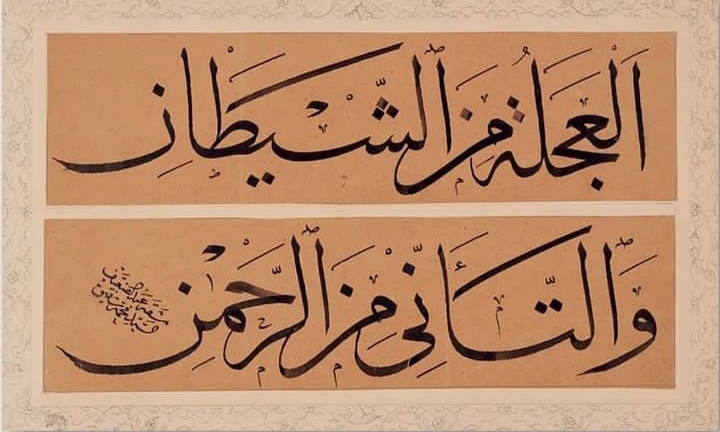 اَلْعَجَلَةُ مِنَ الشَّيْطَانِ
وَالتَّأَنِّي مِنَ الرَّحْمٰنِ